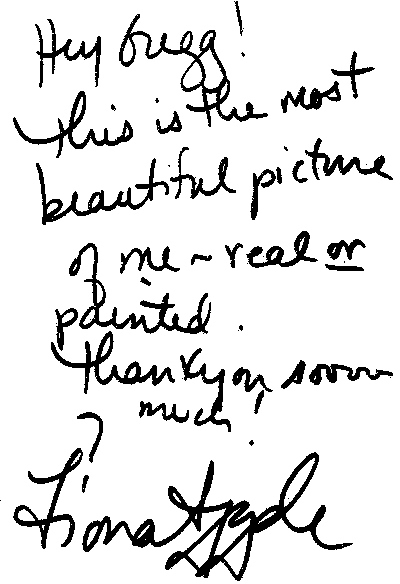 Hey Gregg!
This is the most
beautiful picture
of me ~ real or
painted.
Thankyou soooo
much!
Fiona Apple